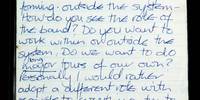 forming - outside the system -
How do you see the role of
the band? Do you want to
work within or outside the
system. Do we want to do
long
major tours of our own?
Personally I would rather
adopt a different role with